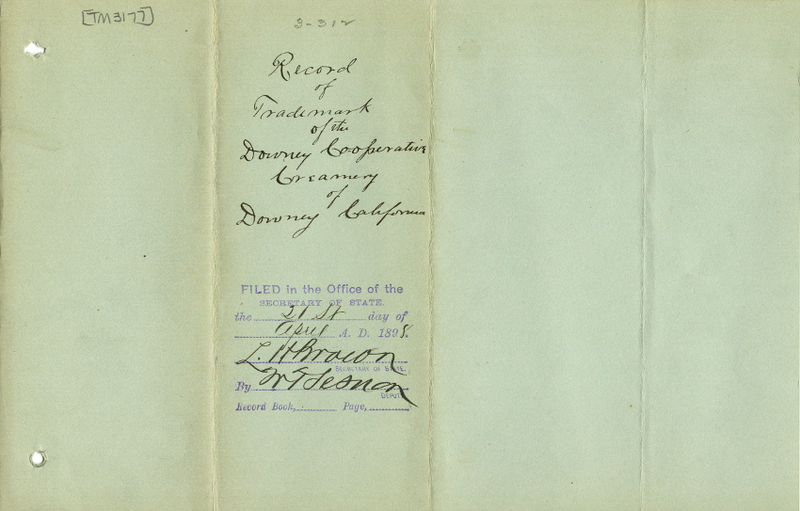 [TM3177]
3-312
Record
of
Trademark
of the
Downey Cooperative
Creamery
of
Downey California
FILED in the Office of the
SECRETARY OF STATE.
the 21st day of
April A. D. 1898.
L. H Brown
SECRETARY OF STATE.
By W T Sesnon
DEPUTY
Record Book, Page,